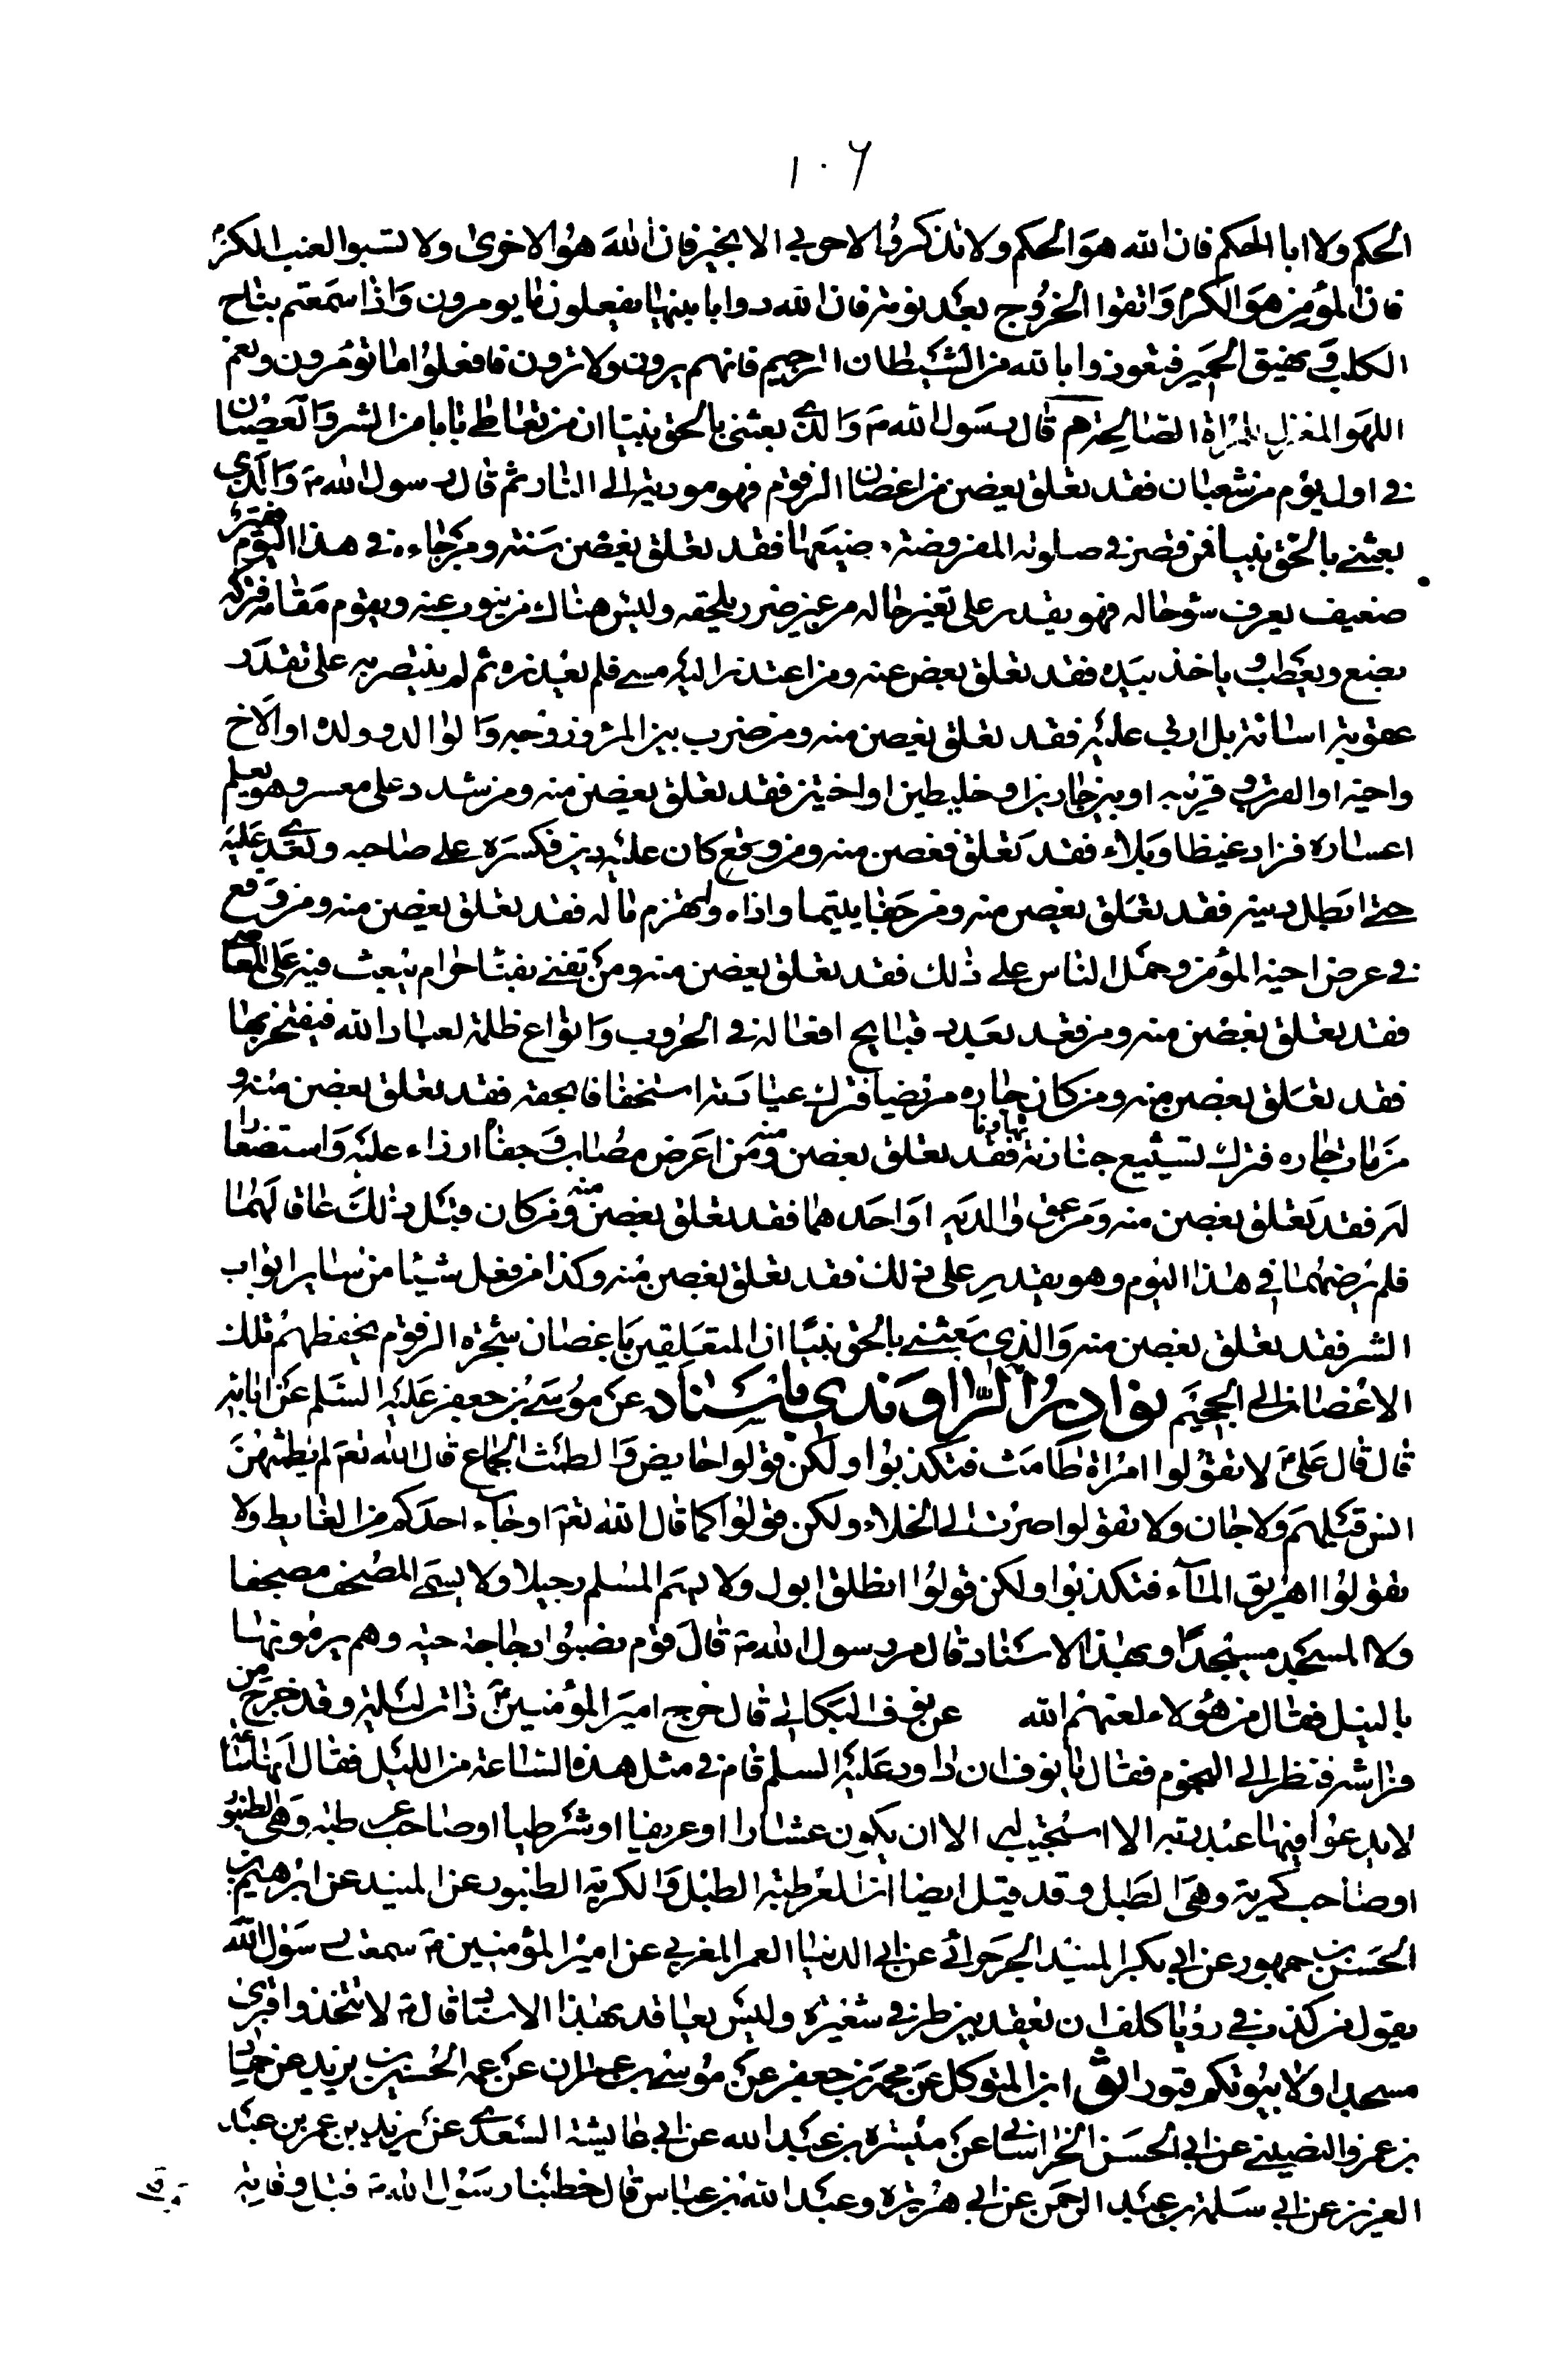 ١٠٦
الحكم ولا ابا الحكم فان الله هو الحكم ولا تذكروا الاخرى الا بخير فان الله هو الاخرى ولا تسبوا العنب الكرم
فان المؤمن هو الكرم واتقوا الخروج بعد نومة فان لله دوابا يبثها يفعلون ما يومرون واذا سمعتم بناح
الكلب ونهيق الحمير فتعوذوا بالله من الشيطان الرجيم فانهم يرون ولا ترون فافعلوا ما تؤمرون ونعم
اللهو المغزل للمراة الصالحة م قال رسول الله ص والذي بعثني بالحق نبيا ان من تعاطى بابا من الشر والعصيان
في اول يوم من شعبان فقد تعلق بغصن من اغصان الزقوم فهو موديه الى النار ثم قال رسول الله ص والذي
بعثني بالحق نبيا فمن قصر في صلوته المفروضة وضيعها فقد تعلق بغصن منه ومن جاءه في هذا اليوم فقير
ضعيف يعرف سؤ حاله فهو يقدر على تغير حاله من غير ضرر يلحقه وليس هناك من ينوب عنه ويقوم مقامه فتركه
يضيع ويعطب ولم ياخذ بيده فقد تعلق بغصن منه ومن اعتذر اليه مسئ فلم يعذره ثم لم يقتصر به على قدر
عقوبة اسائته بل اربى عليه فقد تعلق بغصن منه ومن ضرب بين المرء وزوجه والوالد وولده او الاخ
واخيه او القريب وقريبه او بين جارين او خليطين او اختين فقد تعلق بغصن منه ومن شدد على معسر وهو يعلم
اعساره فزاد غيظا وبلاء فقد تعلق بغصن منه ومن كان عليه دين فكسره على صاحبه وتعدى عليه
حتى ابطل دينه فقد تعلق بغصن منه ومن جفا يتيما واذاه وتهزم ماله فقد تعلق بغصن منه ومن وقع
في عرض اخيه المؤمن وحمل الناس على ذلك فقد تعلق بغصن منه ومن تغنى بغناء حرام يبعث فيه على المعاصي
فقد تعلق بغصن منه ومن قعد يعدد قبايح افعاله في الحروب وانواع ظلمه لعباد الله فيفتخر بها
فقد تعلق بغصن منه ومن كان جاره مريضا فترك عيادته استخفافا بحقه فقد تعلق بغصن منه و
من مات جاره فترك تشييع جنازته تهاونا فقد تعلق بغصن منه ومن اعرض مصاب وجفاه ازراء عليه واستصغارا
له فقد تعلق بغصن منه ومن عق والديه او احدهما فقد تعلق بغصن منه ومن كان قبل ذلك عاقا لهما
فلم يرضهما في هذا اليوم وهو يقدر على ذلك فقد تعلق بغصن منه وكذا من فعل شيئا من ساير ابواب
الشر فقد تعلق بغصن منه والذي بعثني بالحق نبيا ان المتعلقين باغصان شجرة الزقوم يخفضهم تلك
الاغصان الى الجحيم نوادر الراوندي باسناده عن موسى بن جعفر عليه السلم عن ابائه
قال قال علي ع لا تقولوا امراة طامث فتكذبوا ولكن قولوا حايض والطمث الجماع قال الله تع لم يطمثهن
انس قبلهم ولا جان ولا تقولوا صرت الى الخلاء ولكن قولوا كما قال الله تع او جاء احدكم من الغايط ولا
تقولوا اهريق الماء فتكذبوا ولكن قولوا انطلق ابول ولا يسم المسلم رجيلا ولا يسمى المصحف مصيحفا
ولا المسجد مسيجدا وبهذا الاسناد قال مر رسول الله ص قال قوم نصبوا دجاجة حية وهم يرمونها
بالنبل فقال من هؤلاء لعنهم الله عن نوف البكالي قال خرج امير المؤمنين ع ذات ليلة وقد خرج من
فراشه فنظر الى النجوم فقال يا نوف ان داود عليه السلم قام في مثل هذه الساعة من الليل فقال انها ساعة
لا يدعو فيها عبد ربه الا استجيب له الا ان يكون عشارا او عريفا او شرطيا او صاحب عرطبة وهي الطنبور
او صاحب كوبة وهي الطبل وقد قيل ايضا ان العرطبة الطبل والكوبة الطنبور عن المفيد عن ابرهيم بن
الحسن بن جمهور عن ابي بكر المفيد الجرجرائي عن ابي الدنيا المعمر المغربي عن امير المؤمنين ع سمعت رسول الله
يقول من كذب في رؤيا كلف ان يعقد بين طرفي شعيرة وليس بعاقد بهذا الاسناد قال ص لا تتخذوا قبري
مسجدا ولا بيوتكم قبورا لق ابن المتوكل عن محمد بن جعفر عن موسى بن عمران عن عمه الحسين بن يزيد عن حماد
بن عمرو النصيبي عن ابي الحسن الخراساني عن ميسرة بن عبد الله عن ابي عايشة السعدي عن يزيد بن عمر بن عبد
العزيز عن ابي سلمة بن عبد الرحمن عن ابي هريرة وعبد الله بن عباس قال خطبنا رسول الله ص قبل وفاته